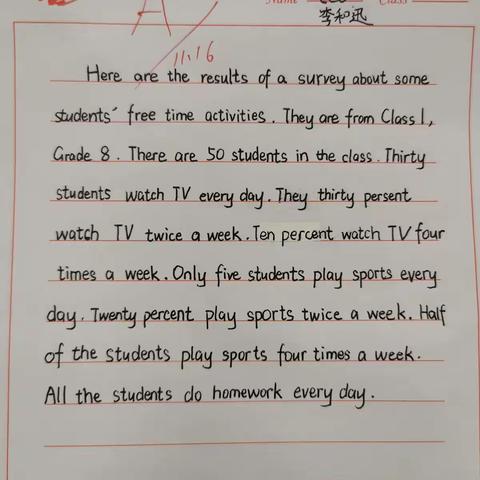 Name
Class
李和迅
A
11.16
Here are the results of a survey about some
students' free time activities. They are from Class 1,
Grade 8. There are 50 students in the class. Thirty
students watch TV every day. They thirty persent
watch TV twice a week. Ten percent watch TV four
times a week. Only five students play sports every
day. Twenty percent play sports twice a week. Half
of the students play sports four times a week.
All the students do homework every day.